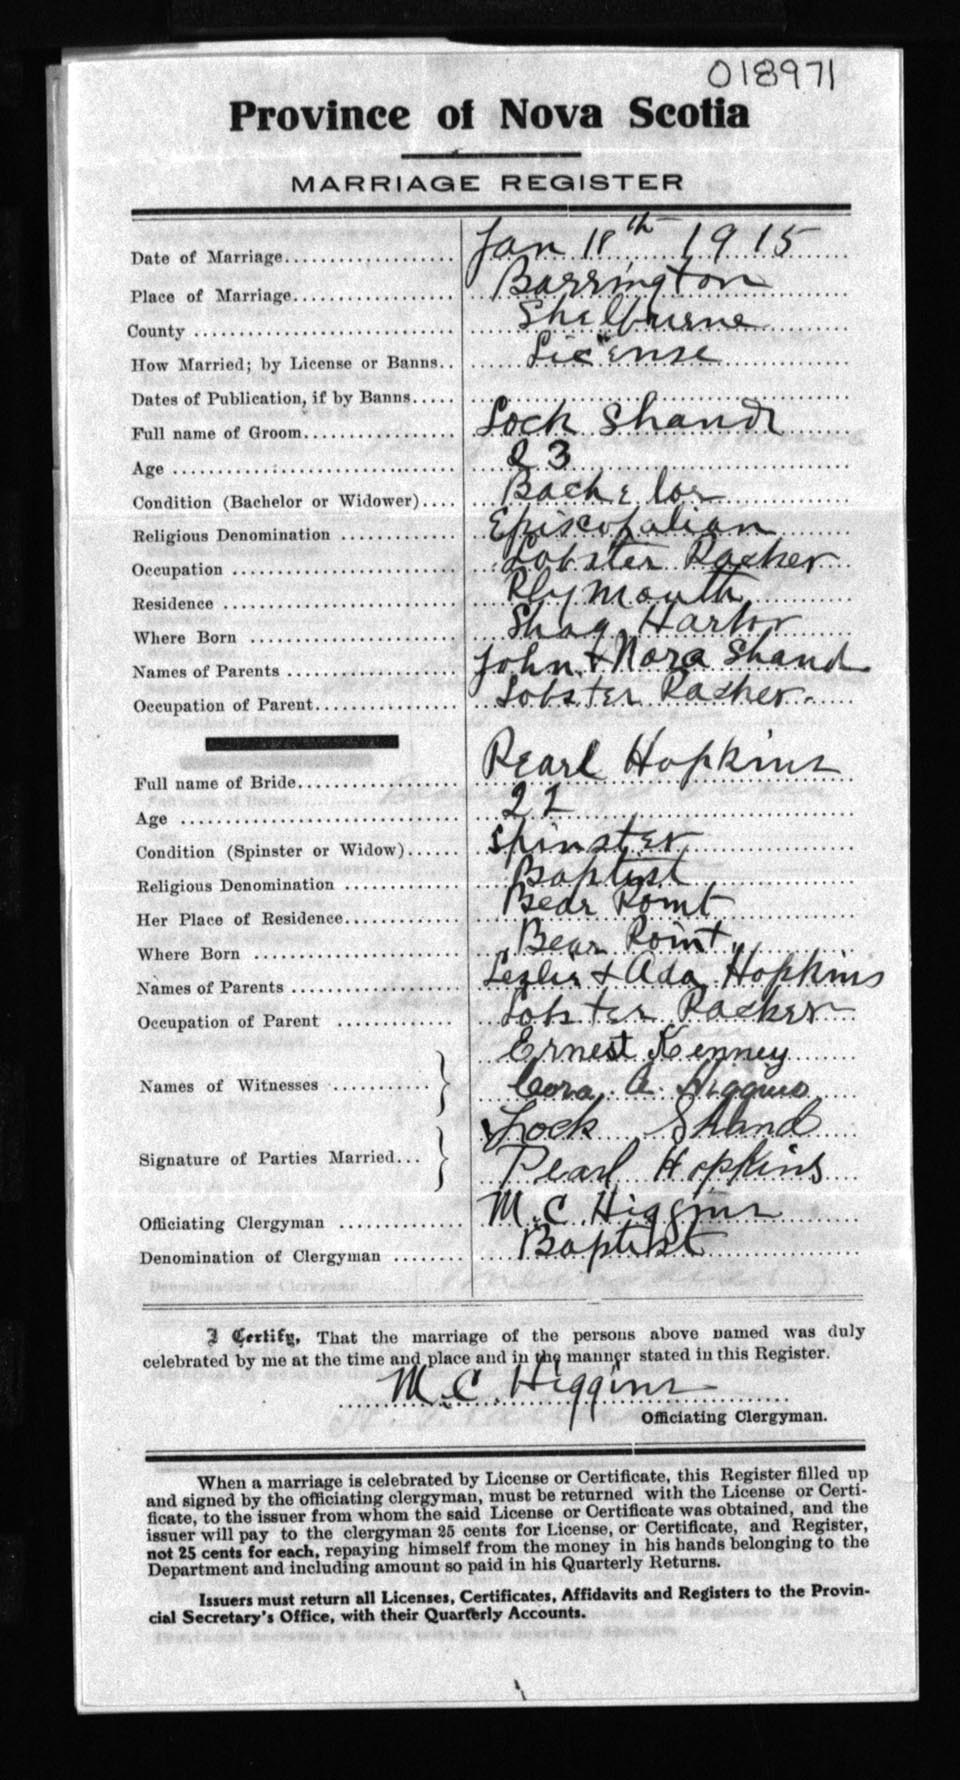 018971
Province of Nova Scotia
MARRIAGE REGISTER
Date of Marriage.................... Jan 18th 1915
Place of Marriage................... Barrington
County .............................. Shelburne
How Married; by License or Banns.. License
Dates of Publication, if by Banns.....
Full name of Groom.................. Lock Shand
Age ................................. 23
Condition (Bachelor or Widower).... Bachelor
Religious Denomination ............. Episcopalian
Occupation .......................... Lobster Packer
Residence ........................... Plymouth
Where Born ......................... Shag Harbor
Names of Parents .................... John & Nora Shand
Occupation of Parent................. Lobster Packer.
Full name of Bride................... Pearl Hopkins
Age ................................. 22
Condition (Spinster or Widow)...... Spinster
Religious Denomination ............. Baptist
Her Place of Residence.............. Bear Point
Where Born ......................... Bear Point
Names of Parents .................... Lezlie & Ada Hopkins
Occupation of Parent ............... Lobster Packer
Ernest Kenney
Names of Witnesses ...........
Cora A. Higgins
Lock Shand
Signature of Parties Married...
Pearl Hopkins
Officiating Clergyman .............. M. C. Higgins
Denomination of Clergyman ......... Baptist
I Certify, That the marriage of the persons above named was duly
celebrated by me at the time and place and in the manner stated in this Register.
M. C. Higgins
Officiating Clergyman.
When a marriage is celebrated by License or Certificate, this Register filled up
and signed by the officiating clergyman, must be returned with the License or Certi-
ficate, to the issuer from whom the said License or Certificate was obtained, and the
issuer will pay to the clergyman 25 cents for License, or Certificate, and Register,
not 25 cents for each, repaying himself from the money in his hands belonging to the
Department and including amount so paid in his Quarterly Returns.
Issuers must return all Licenses, Certificates, Affidavits and Registers to the Provin-
cial Secretary's Office, with their Quarterly Accounts.